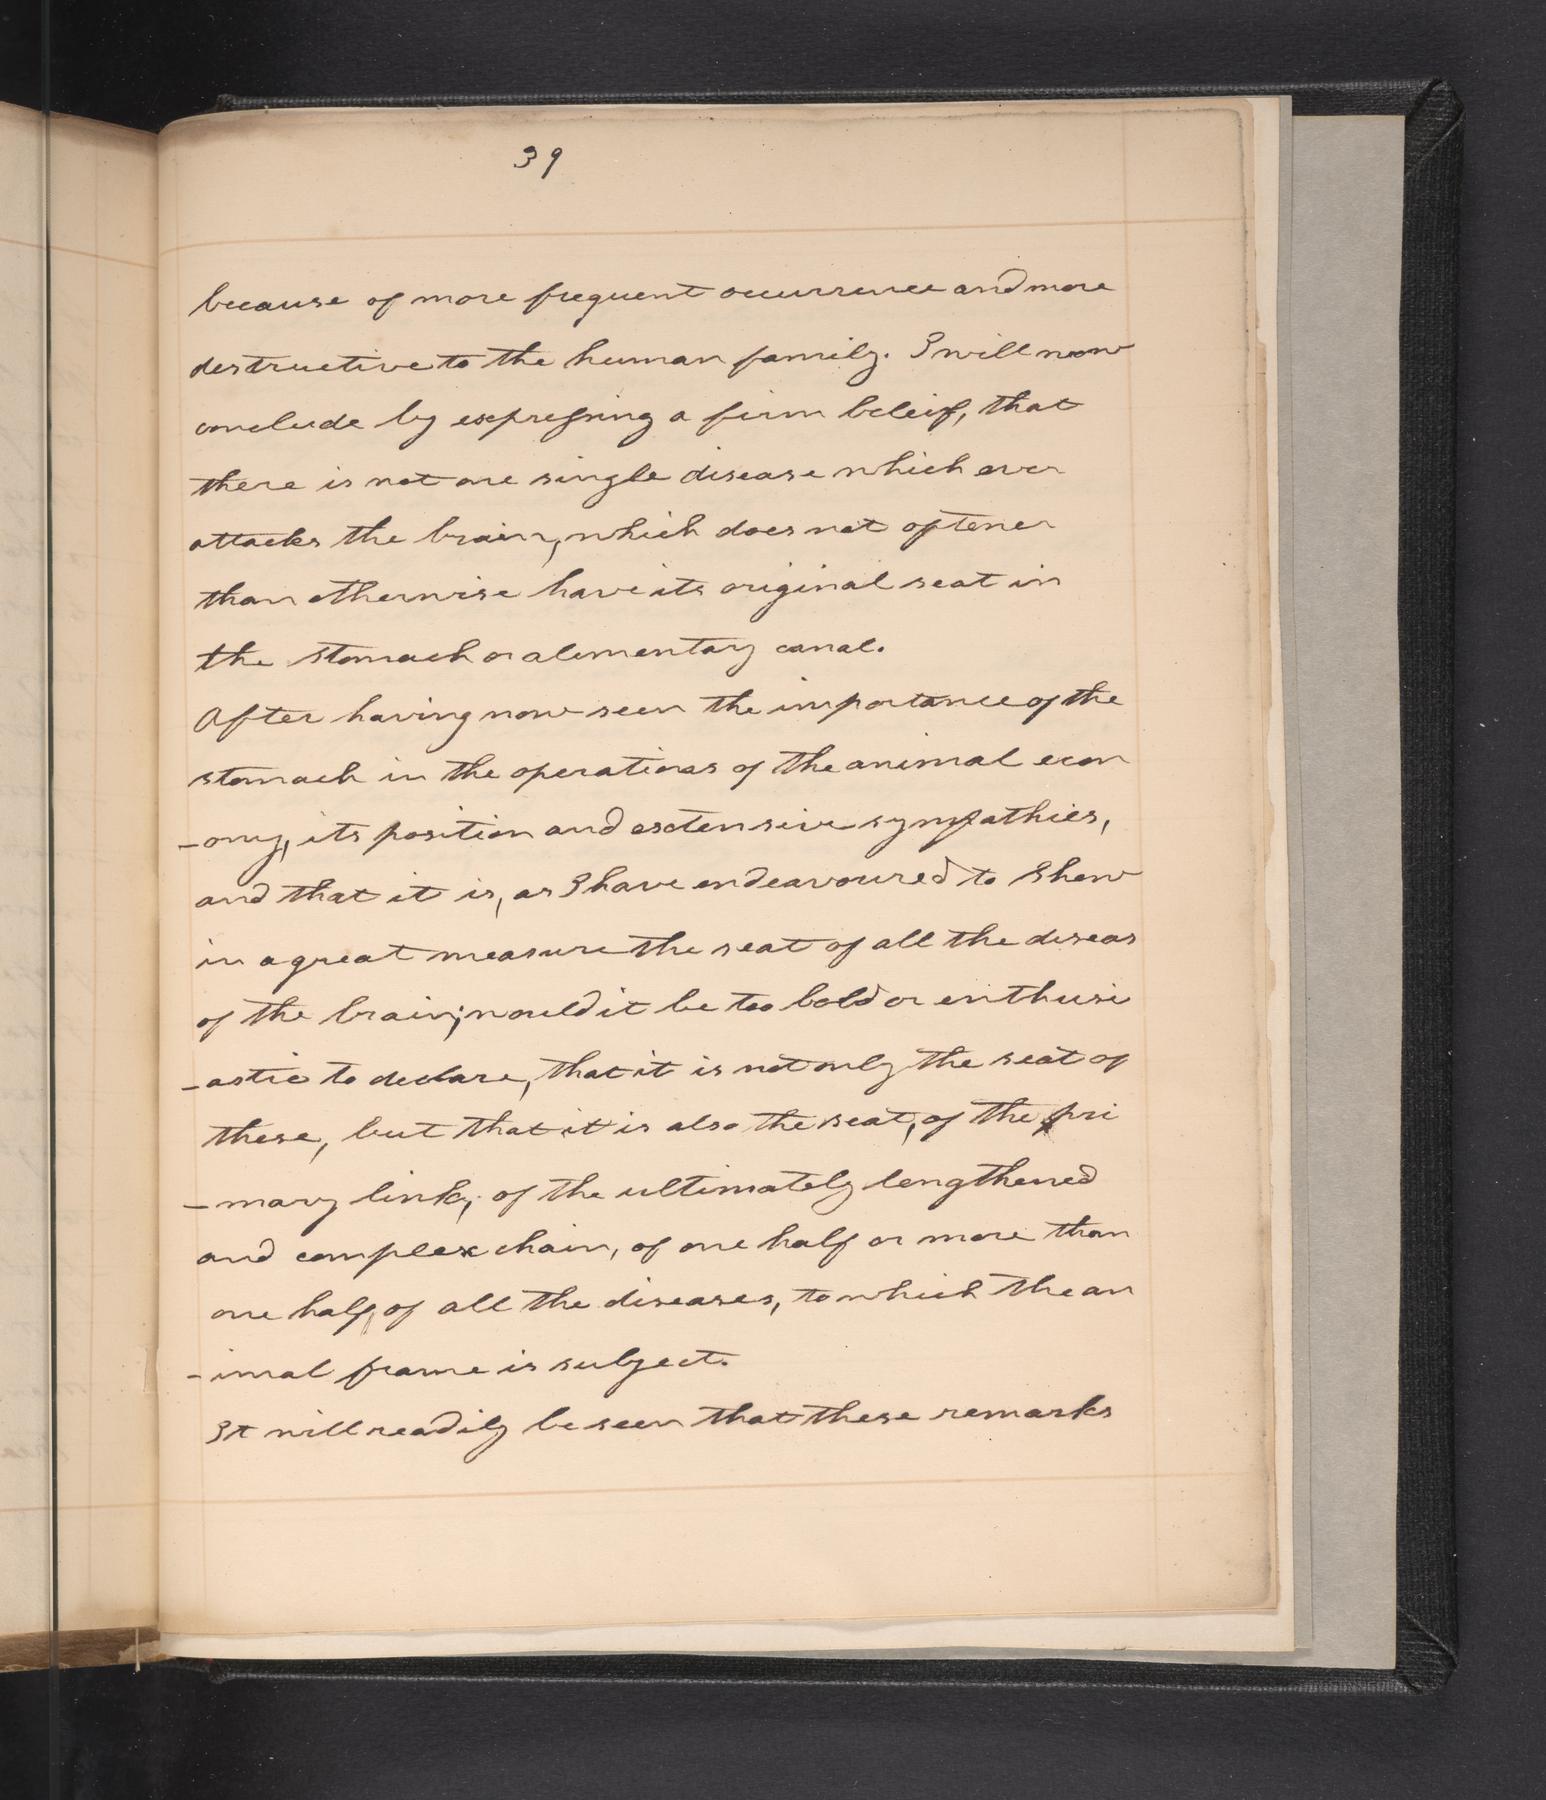 39
because of more frequent occurrence and more
destructive to the human family. I will now
conclude by expressing a firm beleif, that
there is not one single disease which ever
attacks the brain, which does not oftener
than otherwise have its original seat in
the stomach or alementary canal.
After having now seen the importance of the
stomach in the operations of the animal econ
-omy, its position and extensive sympathies,
and that it is, as I have endeavoured to Show
in a great measure the seat of all the diseas
of the brain; would it be too bold or enthusi
-astic to declare, that it is not only the seat of
these, but that it is also the seat, of the pri
-mary link, of the ultimately lengthened
and complex chain, of one half or more than
one half, of all the diseases, to which the an
-imal frame is subject.
It will readily be seen that these remarks